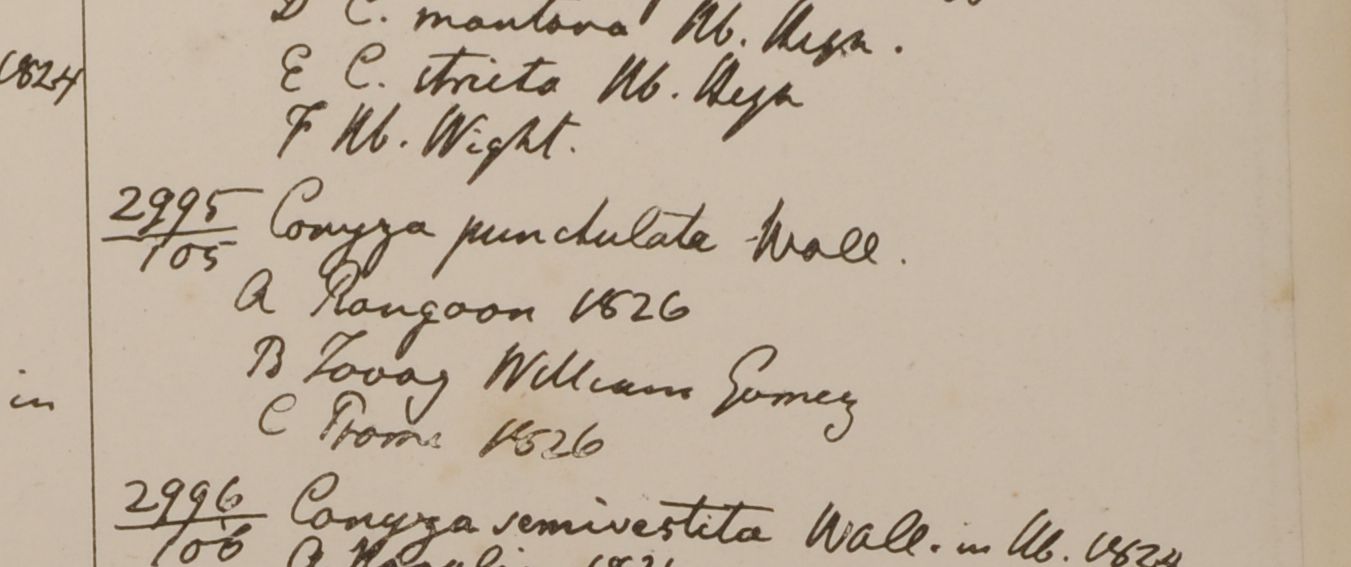 1824
D C. montana Hb. Heyn.
E C. stricta Hb. Heyn
F Hb. Wight.
2995 Conyza punctulata Wall.
105
A Rangoon 1826
B Tavoy William Gomez
in
C Prome 1826
2996 Conyza semivestita Wall. in Hb. 1824
106